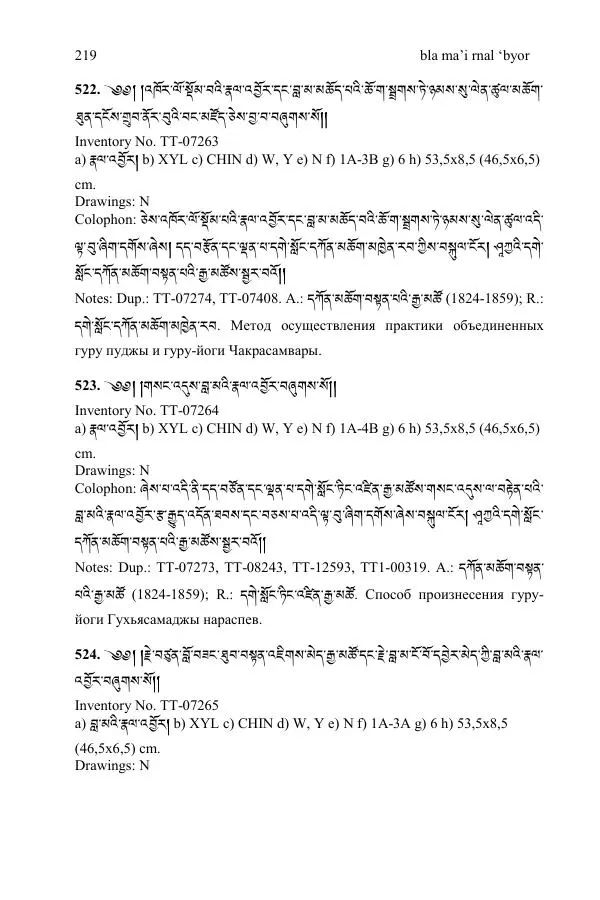 219 bla ma’i rnal ‘byor
522. ༄༅། །འཁོར་ལོ་སྡོམ་བའི་རྣལ་འབྱོར་དང་བླ་མ་མཆོད་པའི་ཆོ་ག་སྦྲགས་ཏེ་ཉམས་སུ་ལེན་ཚུལ་མཆོག་
ཐུན་དངོས་གྲུབ་ནོར་བུའི་བང་མཛོད་ཅེས་བྱ་བ་བཞུགས་སོ།།
Inventory No. TT-07263
a) རྣལ་འབྱོར། b) XYL c) CHIN d) W, Y e) N f) 1A-3B g) 6 h) 53,5x8,5 (46,5x6,5)
cm.
Drawings: N
Colophon: ཅེས་འཁོར་ལོ་སྡོམ་པའི་རྣལ་འབྱོར་དང་བླ་མ་མཆོད་པའི་ཆོ་ག་སྦྲགས་ཏེ་ཉམས་སུ་ལེན་ཚུལ་འདི་
ལྟ་བུ་ཞིག་དགོས་ཞེས། དད་བརྩོན་དང་ལྡན་པ་དགེ་སློང་དཀོན་མཆོག་མཁྱེན་རབ་ཀྱིས་བསྐུལ་ངོར། ཤཱཀྱའི་དགེ་
སློང་དཀོན་མཆོག་བསྟན་པའི་རྒྱ་མཚོས་སྦྱར་བའོ།།
Notes: Dup.: TT-07274, TT-07408. A.: དཀོན་མཆོག་བསྟན་པའི་རྒྱ་མཚོ (1824-1859); R.:
དགེ་སློང་དཀོན་མཆོག་མཁྱེན་རབ. Метод осуществления практики объединенных
гуру пуджы и гуру-йоги Чакрасамвары.
523. ༄༅། །གསང་འདུས་བླ་མའི་རྣལ་འབྱོར་བཞུགས་སོ།།
Inventory No. TT-07264
a) རྣལ་འབྱོར། b) XYL c) CHIN d) W, Y e) N f) 1A-4B g) 6 h) 53,5x8,5 (46,5x6,5)
cm.
Drawings: N
Colophon: ཞེས་པ་འདི་ནི་དད་བརྩོན་དང་ལྡན་པ་དགེ་སློང་ཏིང་འཛིན་རྒྱ་མཚོས་གསང་འདུས་ལ་བརྟེན་པའི་
བླ་མའི་རྣལ་འབྱོར་རྩ་རྒྱུད་འདོན་ཐབས་དང་བཅས་པ་འདི་ལྟ་བུ་ཞིག་དགོས་ཞེས་བསྐུལ་ངོར། ཤཱཀྱའི་དགེ་སློང་
དཀོན་མཆོག་བསྟན་པའི་རྒྱ་མཚོས་སྦྱར་བའོ།།
Notes: Dup.: TT-07273, TT-08243, TT-12593, TT1-00319. A.: དཀོན་མཆོག་བསྟན་
པའི་རྒྱ་མཚོ (1824-1859); R.: དགེ་སློང་ཏིང་འཛིན་རྒྱ་མཚོ. Способ произнесения гуру-
йоги Гухьясамаджы нараспев.
524. ༄༅། །རྗེ་བཙུན་བློ་བཟང་ཐུབ་བསྟན་འཇིགས་མེད་རྒྱ་མཚོ་དང་རྗེ་བླ་མ་ངོ་བོ་དབྱེར་མེད་ཀྱི་བླ་མའི་རྣལ་
འབྱོར་བཞུགས་སོ།།
Inventory No. TT-07265
a) བླ་མའི་རྣལ་འབྱོར། b) XYL c) CHIN d) W, Y e) N f) 1A-3A g) 6 h) 53,5x8,5
(46,5x6,5) cm.
Drawings: N